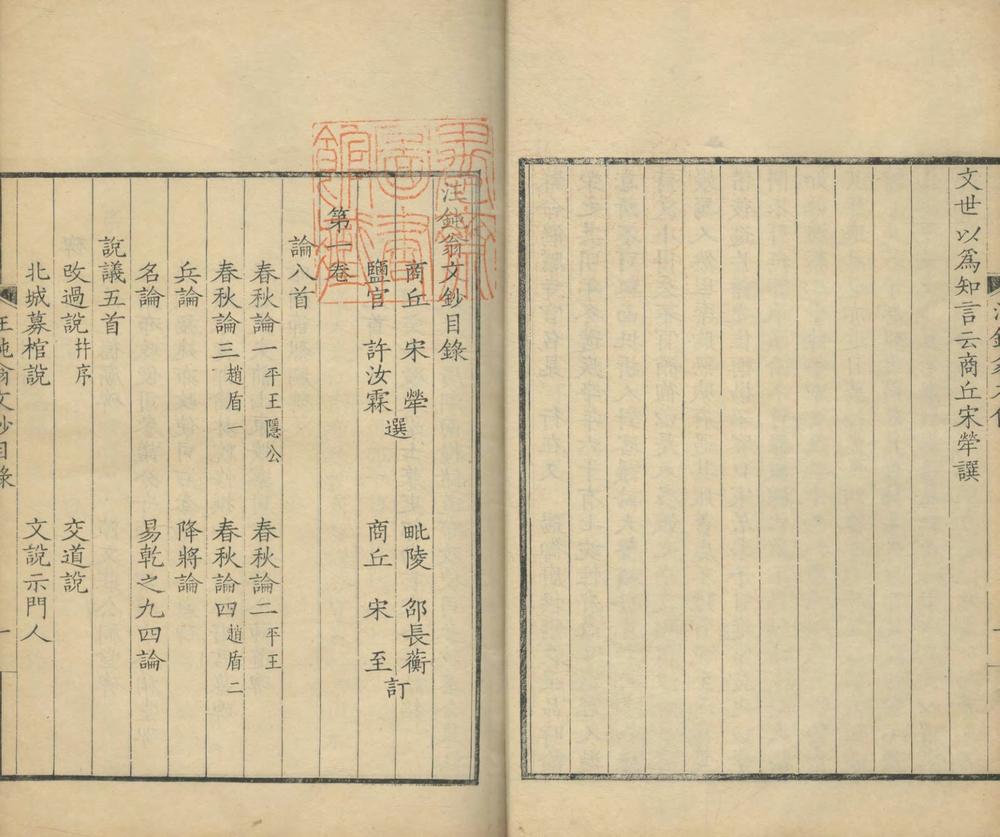 文世以為知言云商丘宋犖譔
汪鈍翁文鈔目錄
商丘 宋犖 毗陵 邵長蘅
鹽官 許汝霖 選 商丘 宋至 訂
第一卷
論八首
春秋論一 平王隱公 春秋論二 平王
春秋論三 趙盾一 春秋論四 趙盾二
兵論 降將論
名論 易乾之九四論
說議五首
攺過說 并序 交道說
北城募棺說 文說示門人
汪鈍翁文鈔目錄 一